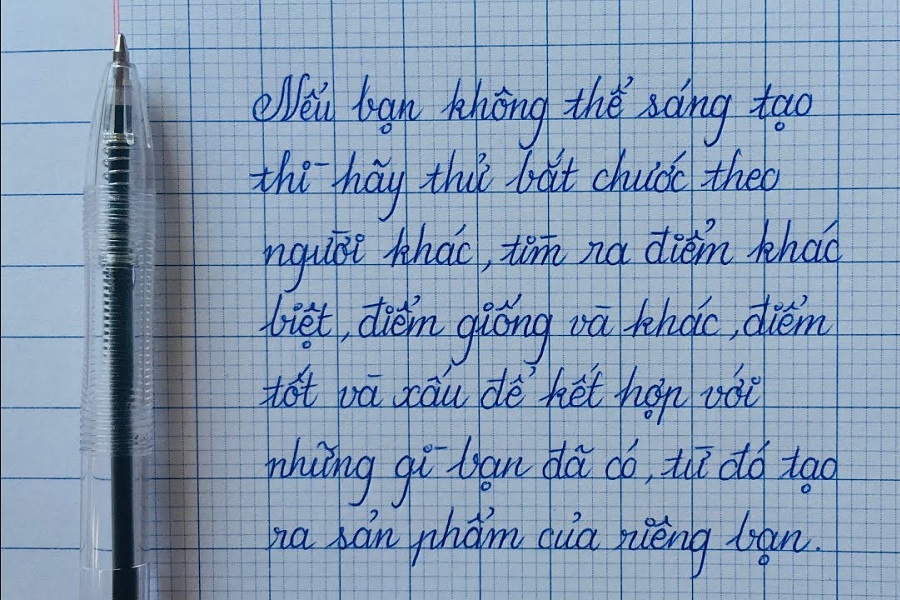 Nếu bạn không thể sáng tạo
thì hãy thử bắt chước theo
người khác, tìm ra điểm khác
biệt, điểm giống và khác, điểm
tốt và xấu để kết hợp với
những gì bạn đã có, từ đó tạo
ra sản phẩm của riêng bạn.